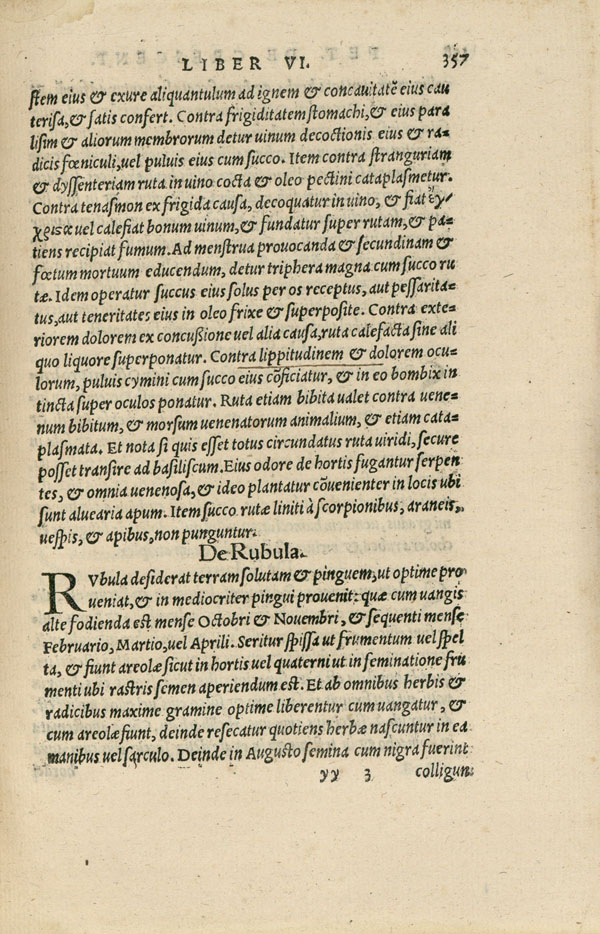 LIBER VI. 357
stem eius & exure aliquantulum ad ignem & concauitatē eius cau
terisa, & satis confert. Contra frigiditatem stomachi, & eius para
lisim & aliorum membrorum detur uinum decoctionis eius & ra-
dicis fœniculi, uel puluis eius cum succo. Item contra stranguriam
& dyssenteriam ruta in uino cocta & oleo pectini cataplasmetur.
Contra tenasmon ex frigida causa, decoquatur in uino, & fiat ἐγ/
χρισις uel calefiat bonum uinum, & fundatur super rutam, & pa-
tiens recipiat fumum. Ad menstrua prouocanda & secundinam &
fœtum mortuum educendum, detur triphera magna cum succo ru
tæ. Idem operatur succus eius solus per os receptus, aut pessarita-
tus, aut teneritates eius in oleo frixe & superposite. Contra exte-
riorem dolorem ex concußione uel alia causa, ruta calefacta sine ali
quo liquore superponatur. Contra lippitudinem & dolorem ocu-
lorum, puluis cymini cum succo eius cōficiatur, & in eo bombix in
tincta super oculos ponatur. Ruta etiam bibita ualet contra uene-
num bibitum, & morsum uenenatorum animalium, & etiam cata-
plasmata. Et nota si quis esset totus circundatus ruta uiridi, secure
posset transire ad basiliscum. Eius odore de hortis fugantur serpen
tes, & omnia uenenosa, & ideo plantatur cōuenienter in locis ubi
sunt aluearia apum. Item succo rutæ liniti à scorpionibus, araneis,
uespis, & apibus, non punguntur.
De Rubula.
RVbula desiderat terram solutam & pinguem, ut optime pro
ueniat, & in mediocriter pingui prouenit: quæ cum uangis
alte fodienda est mense Octobri & Nouembri, & sequenti mense
Februario, Martio, uel Aprili. Seritur spissa ut frumentum uel spel
ta, & fiunt areolæ sicut in hortis uel quaterni ut in seminatione fru
menti ubi rastris semen aperiendum est. Et ab omnibus herbis &
radicibus maxime gramine optime liberentur cum uangatur, &
cum areolæ fiunt, deinde resecatur quotiens herbæ nascuntur in ea
manibus uel sarculo. Deinde in Augusto semina cum nigra fuerint
yy 3 colligun: